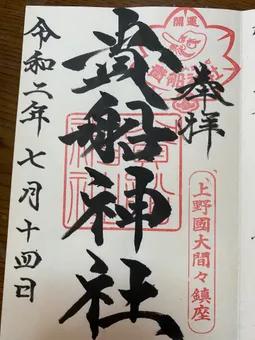 開運
奉拝
貴船神社
上野國大間々鎮座
令和二年七月十四日